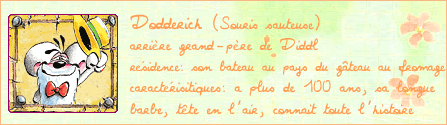 Dodderich (Souris sauteuse)
arrière grand-père de Diddl
résidence: son bateau au pays du gâteau au fromage
caractérisitiques: a plus de 100 ans, sa longue
barbe, tête en l'air, connait toute l'histoire